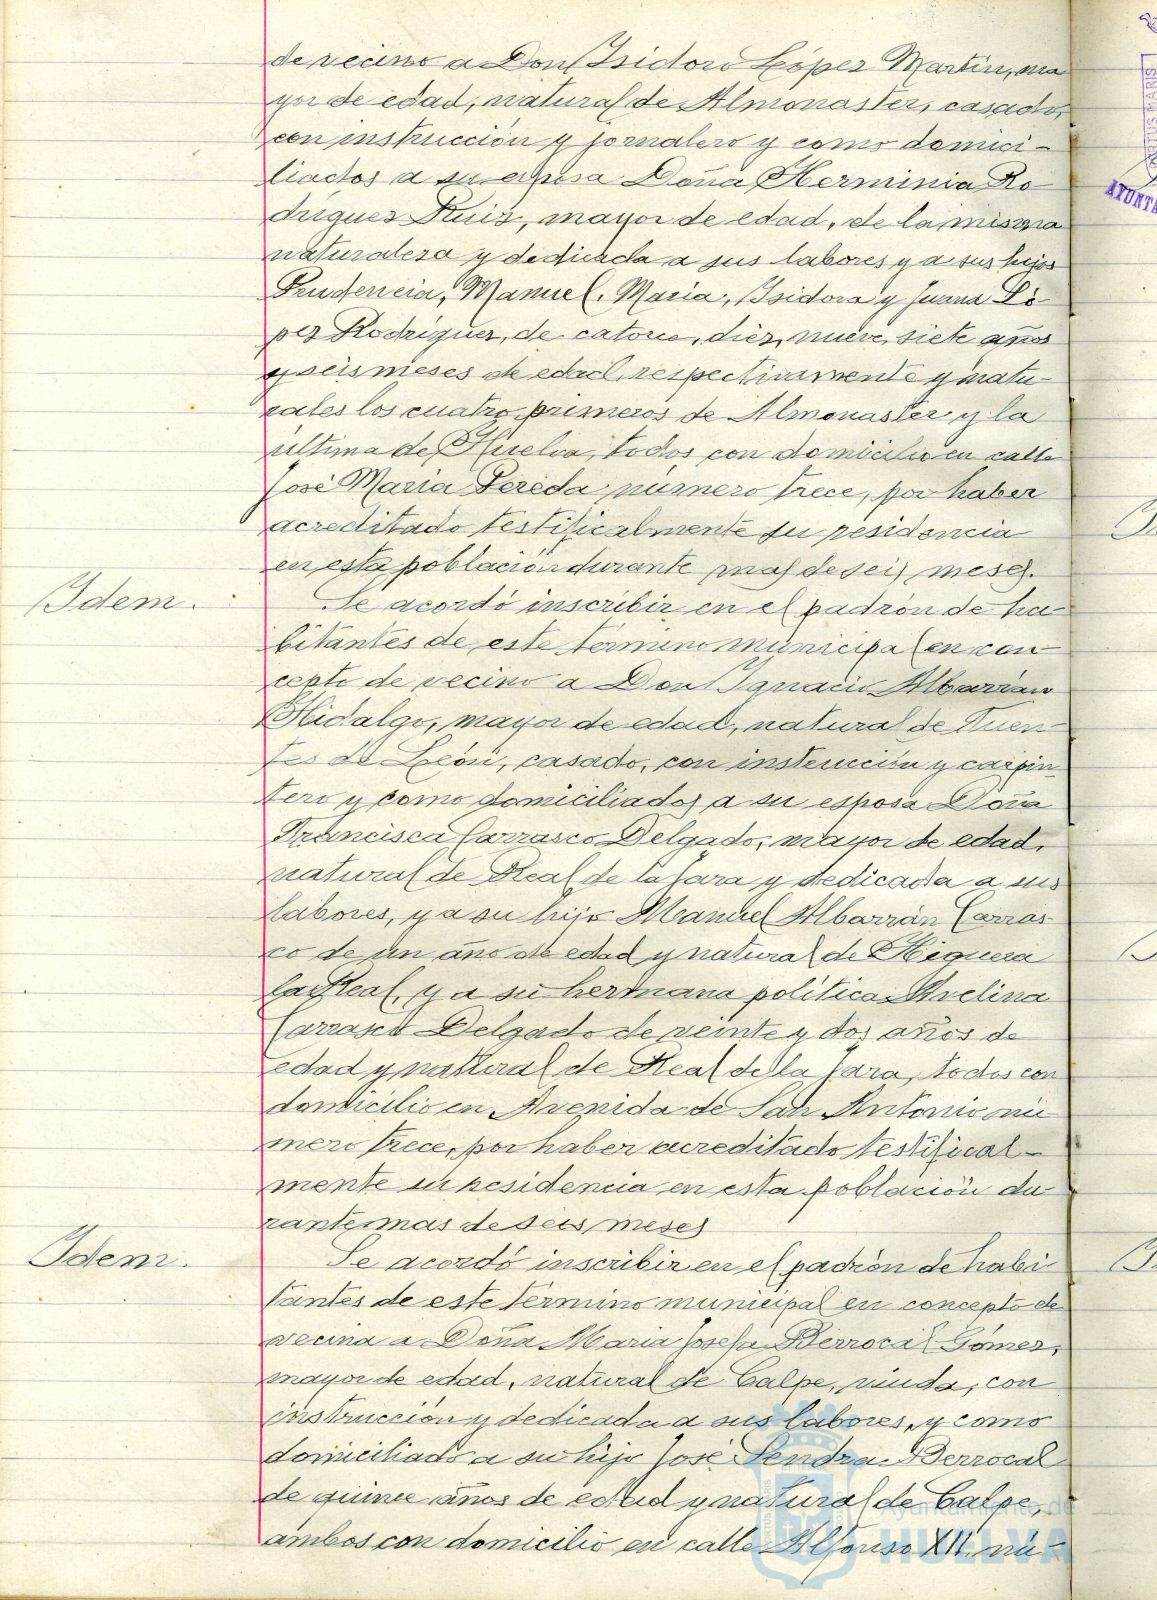 de vecino a Don Isidoro López Martín, ma
yor de edad, natural de Almonaster, casado,
con instrucción y jornalero y como domici-
liados a su esposa Doña Herminia Ro-
dríguez Ruiz, mayor de edad, de la misma
naturaleza y dedicada a sus labores y a sus hijos
Prudencia, Manuel, Maria, Isidora y Juana Ló-
pez Rodríguez, de catorce, diez, nueve, siete años
y seis meses de edad, respectivamente y natu-
rales los cuatro primeros de Almonaster y la
última de Huelva, todos con domicilio en calle
José María Pereda número trece, por haber
acreditado testificalmente su residencia
en esta población durante mas de seis meses.
Idem.
Se acordó inscribir en el padrón de ha-
bitantes de este término municipal en con-
cepto de vecino a Don Ignacio Albarrán
Hidalgo, mayor de edad, natural de Fuen-
tes de León, casado, con instrucción y carpin-
tero y como domiciliados a su esposa Doña
Francisca Carrasco Delgado, mayor de edad,
natural de Real de la Jara y dedicada a sus
labores, y a su hijo Manuel Albarrán Carras-
co de un año de edad y natural de Higuera
la Real, y a su hermana política Avelina
Carrasco Delgado de veinte y dos años de
edad y natural de Real de la Jara, todos con
domicilio en Avenida de San Antonio nú
mero trece, por haber acreditado testifical-
mente su residencia en esta población du-
rante mas de seis meses
Idem.
Se acordó inscribir en el padrón de habi-
tantes de este término municipal en concepto de
vecina a Doña Maria Josefa Berrocal Gómez,
mayor de edad, natural de Calpe, viuda, con
instrucción y dedicada a sus labores, y como
domiciliado a su hijo José Sendra Berrocal
de quince años de edad y natural de Calpe,
ambos con domicilio en calle Alfonso XII, nú-
Ayuntamiento de
HUELVA